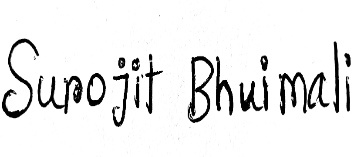 Surojit Bhuimali